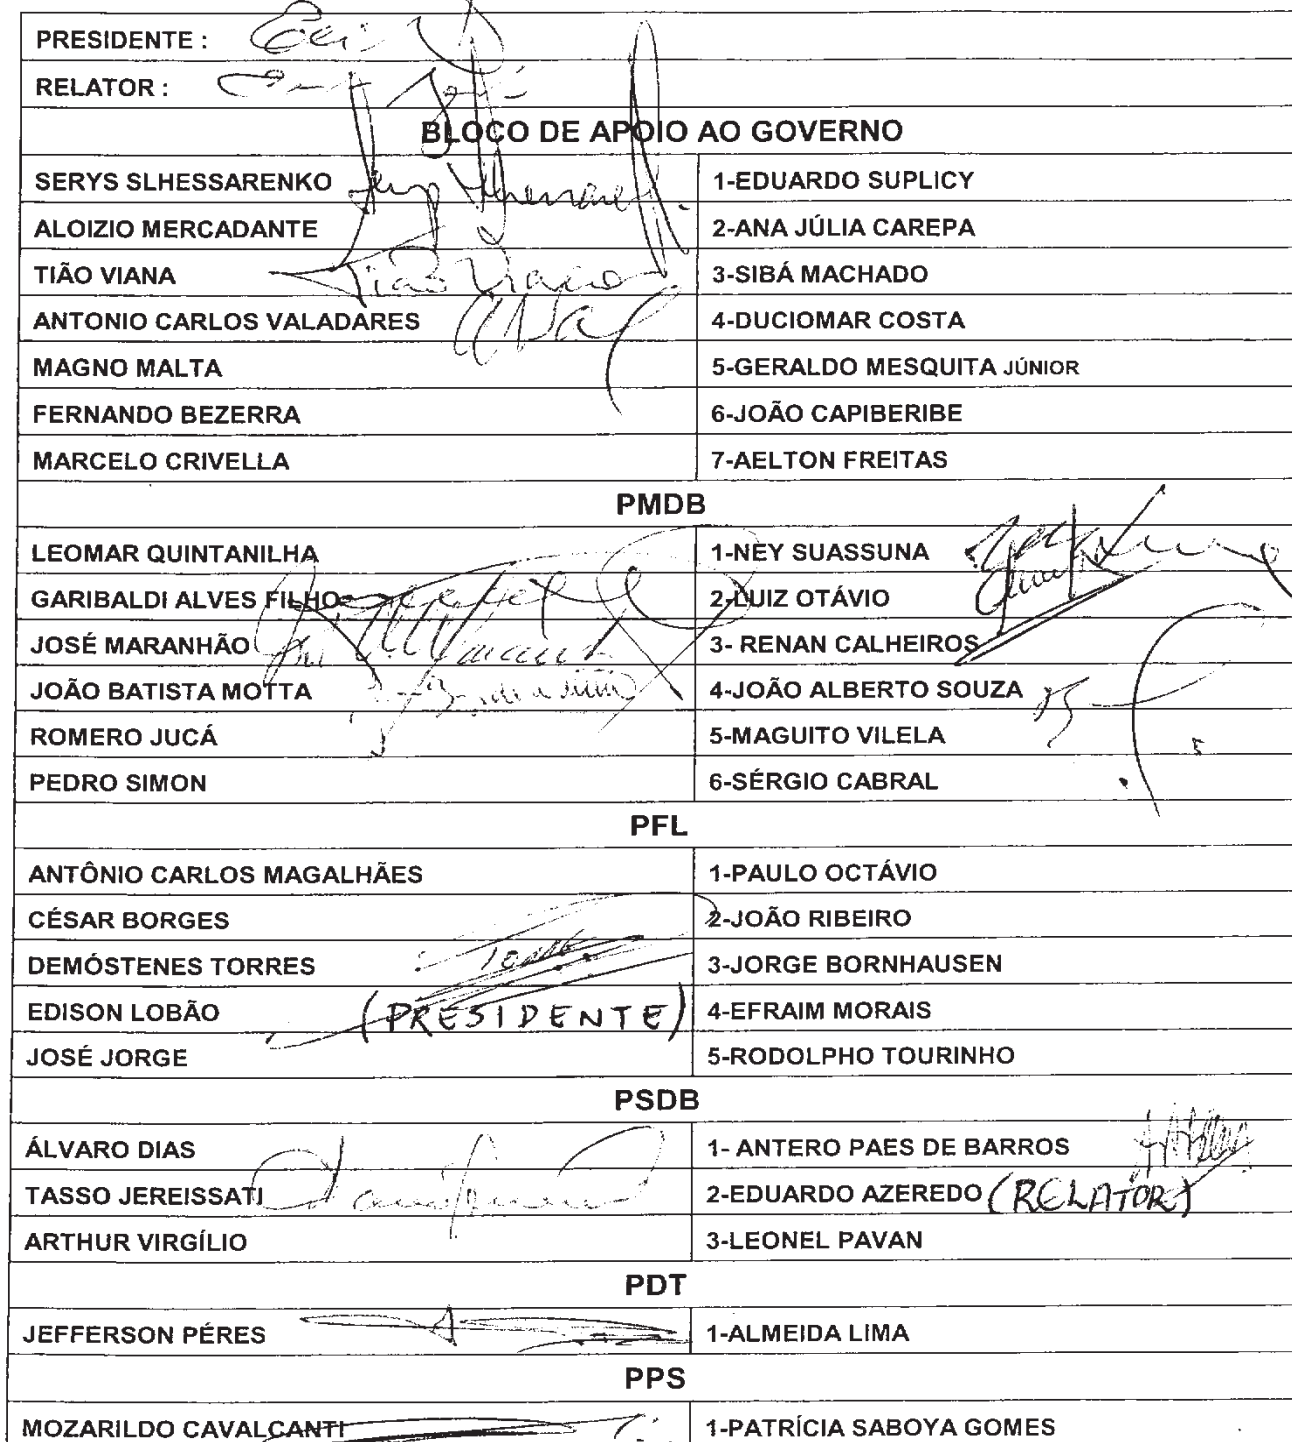 PRESIDENTE :
RELATOR :
BLOCO DE APOIO AO GOVERNO
SERYS SLHESSARENKO 1-EDUARDO SUPLICY
ALOIZIO MERCADANTE 2-ANA JÚLIA CAREPA
TIÃO VIANA Tião Viana 3-SIBÁ MACHADO
ANTONIO CARLOS VALADARES 4-DUCIOMAR COSTA
MAGNO MALTA 5-GERALDO MESQUITA JÚNIOR
FERNANDO BEZERRA 6-JOÃO CAPIBERIBE
MARCELO CRIVELLA 7-AELTON FREITAS
PMDB
LEOMAR QUINTANILHA 1-NEY SUASSUNA
GARIBALDI ALVES FILHO 2-LUIZ OTÁVIO
JOSÉ MARANHÃO 3- RENAN CALHEIROS
JOÃO BATISTA MOTTA 4-JOÃO ALBERTO SOUZA
ROMERO JUCÁ 5-MAGUITO VILELA
PEDRO SIMON 6-SÉRGIO CABRAL
PFL
ANTÔNIO CARLOS MAGALHÃES 1-PAULO OCTÁVIO
CÉSAR BORGES 2-JOÃO RIBEIRO
DEMÓSTENES TORRES 3-JORGE BORNHAUSEN
EDISON LOBÃO (PRESIDENTE) 4-EFRAIM MORAIS
JOSÉ JORGE 5-RODOLPHO TOURINHO
PSDB
ÁLVARO DIAS 1- ANTERO PAES DE BARROS
TASSO JEREISSATI 2-EDUARDO AZEREDO (RELATOR)
ARTHUR VIRGÍLIO 3-LEONEL PAVAN
PDT
JEFFERSON PÉRES 1-ALMEIDA LIMA
PPS
MOZARILDO CAVALCANTI 1-PATRÍCIA SABOYA GOMES